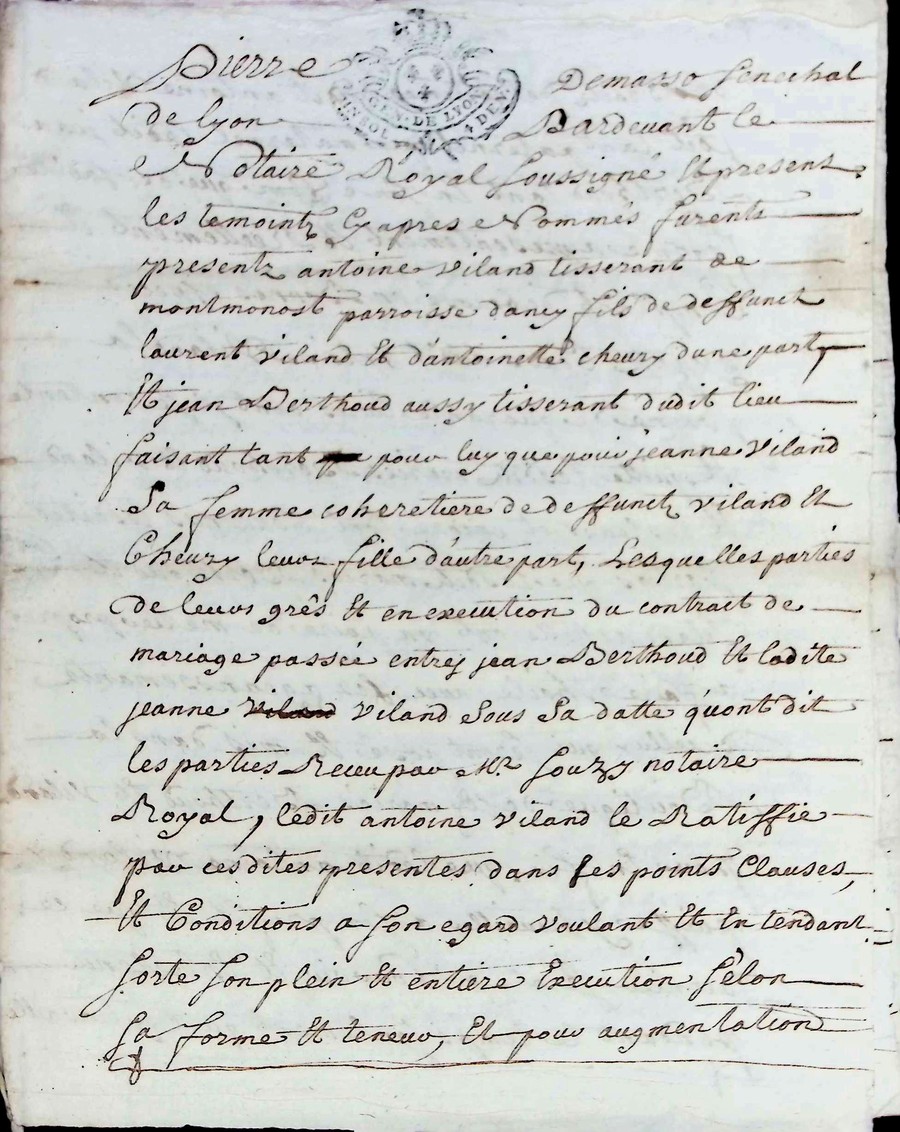 Pierre Demasso senechal
GEN. DE LYON
4 DEN.
de lyon Pardevant le
Notaire Royal soussigné Et present
les temointz Cy apres Nommés furents
presentz antoine viland tisserant de
montmonost parroisse dancy fils de deffunct
laurent viland Et d'antoinette cheury dune part,
Et jean Berthoud aussy tisserant dudit lieu
faisant tant pour luy que pour jeanne viland
Sa femme coheretiere de deffunctz viland Et
Cheury leurs fille d'autre part, Lesquelles parties
de leurs grês Et en execution du contract de
mariage passée entrej jean Berthoud Et ladite
jeanne viland viland Sous Sa datte q'uont dit
les parties Receu par Mr. souzy notaire
Royal, ledit antoine viland le Ratiffie
par cesdites presentes dans ses points Clauses,
Et Conditions a son egard voulant Et Entendant
sorte son plein Et entiere Execution sêlon
sa forme Et teneur, Et pour augmentation